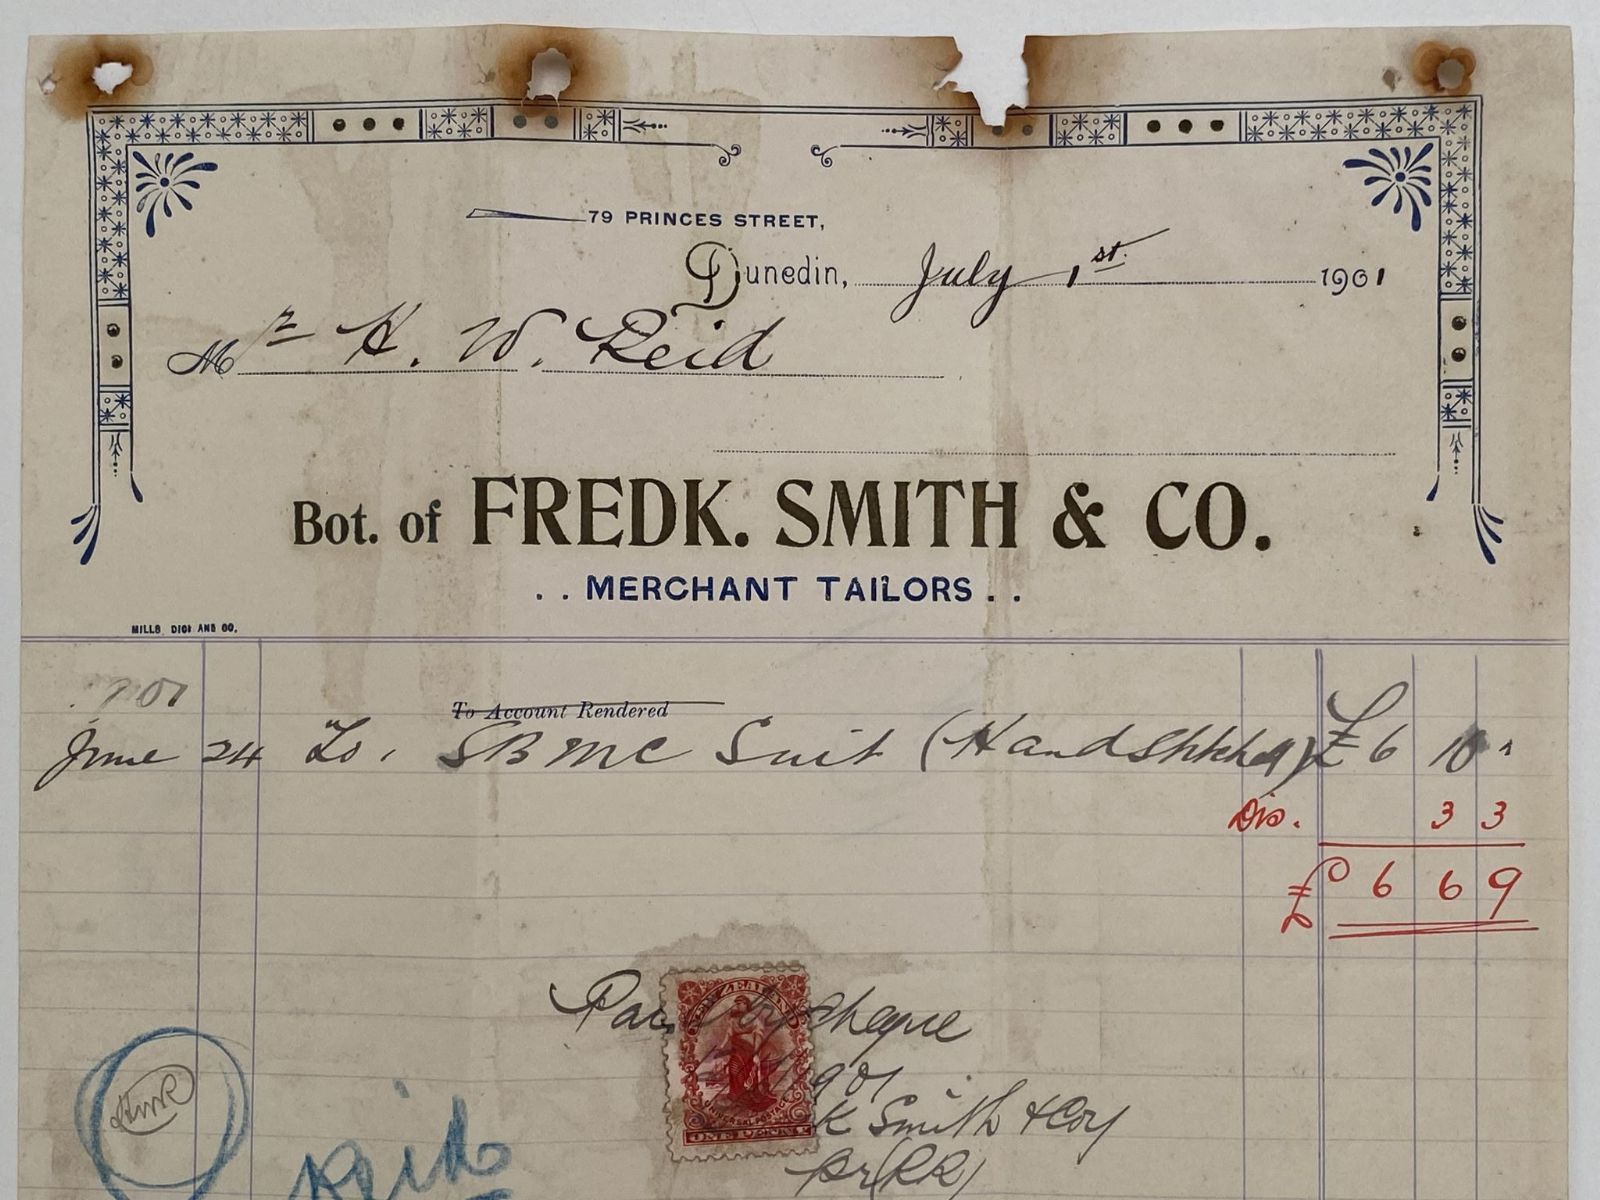 79 PRINCES STREET,
Dunedin, July 1st. 1901
Mr H. W. Reid
Bot. of FREDK. SMITH & CO.
. . MERCHANT TAILORS . .
MILLS, DICK AND CO.
To Account Rendered
June 24 To, SB MC Suit (Handstitched) £6 10 "
Dis. 3 3
£ 6 6 9
Paid by cheque
NEW ZEALAND
1901
UNIVERSAL POSTAGE
K Smith & Coy
ONE PENNY
pr (RR)
HWR
Reid